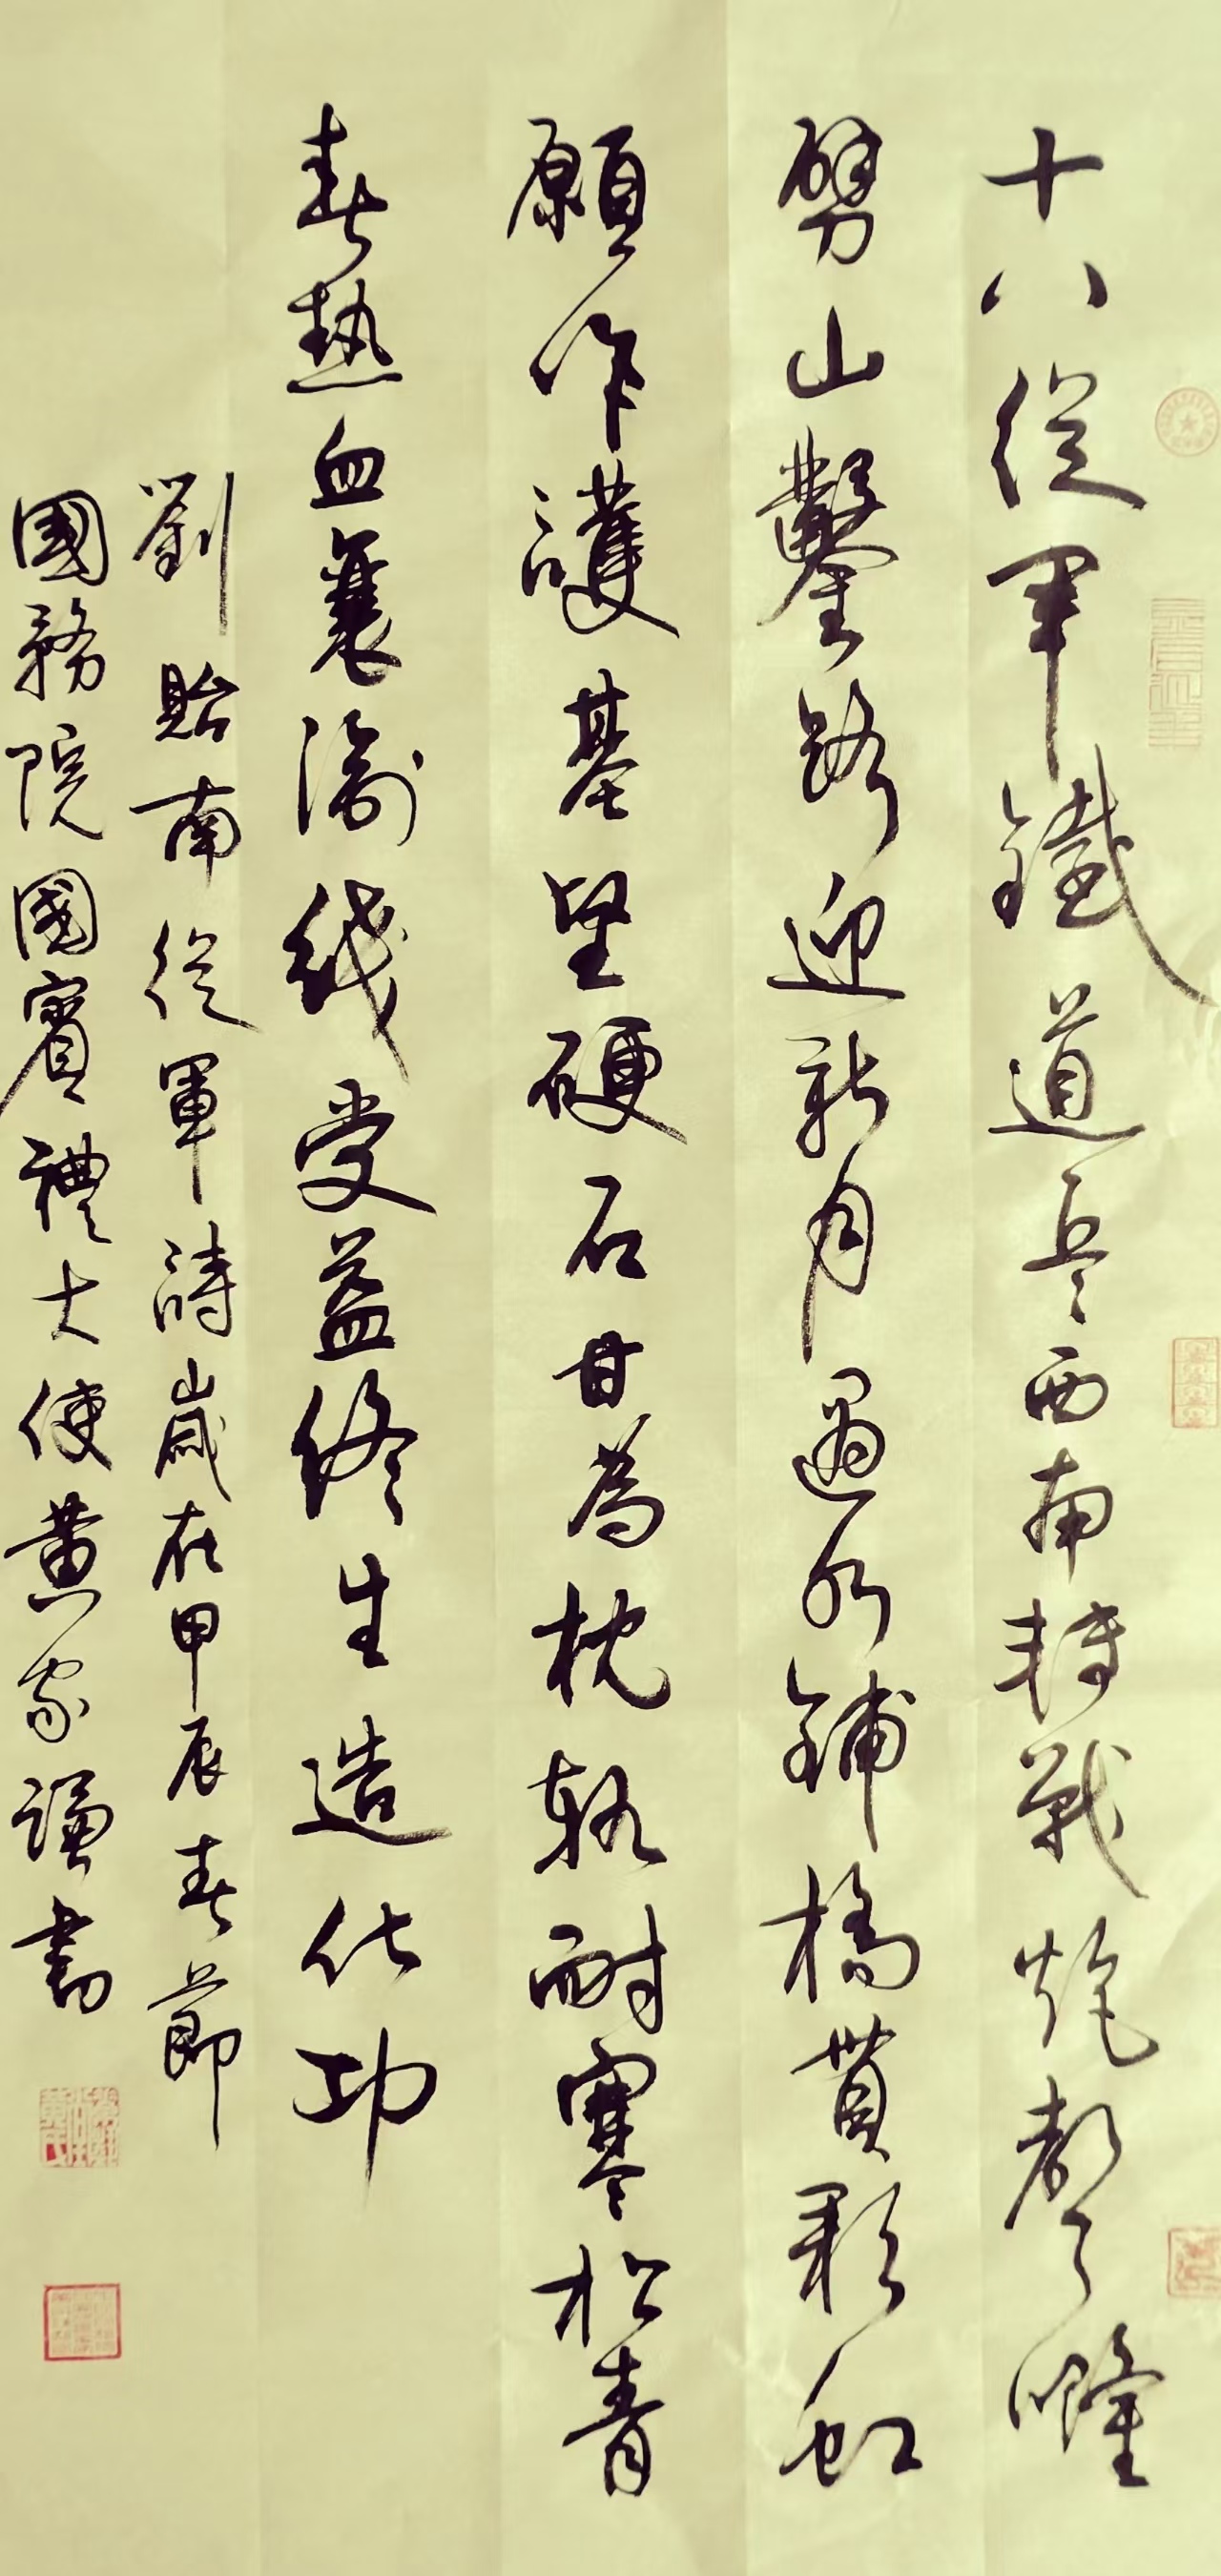 十八從軍鐵道兵西南轉戰炮聲隆
劈山鑿路迎新月遇水鋪橋貫彩虹
願作護基堅硬石甘為枕軌耐寒松青
春熱血襄渝线受益终生造化功
劉貽南從軍詩歲在甲辰春節
國務院國賓禮大使黃家謙書